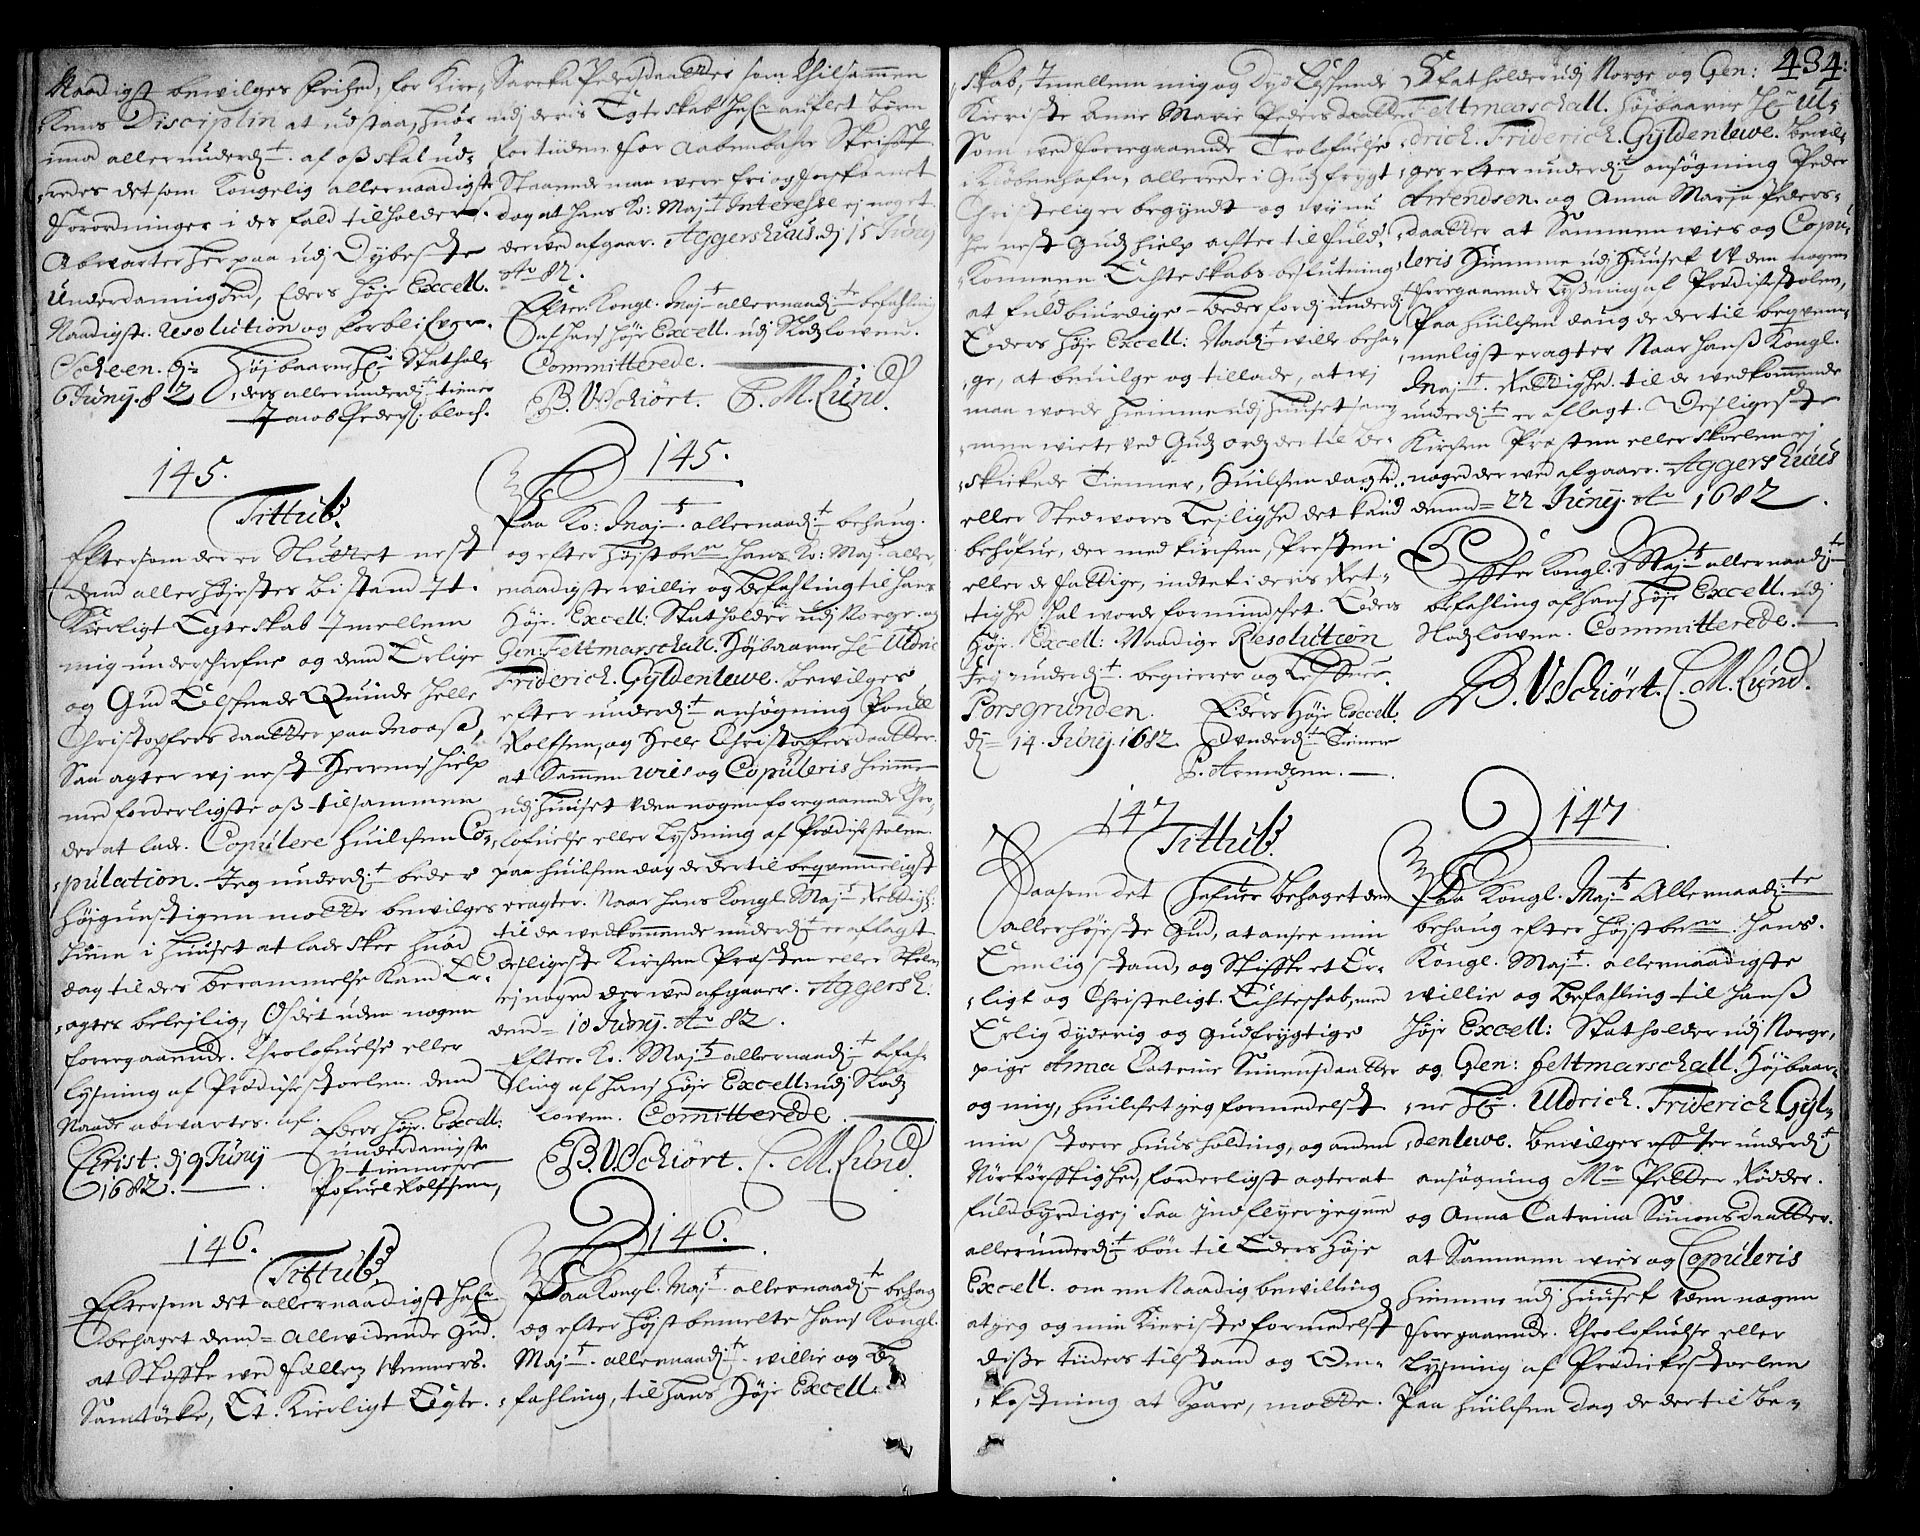 Naadigst bewilges frihed, for Kir-
kens Disciplin at udstaa, huor
imod allerunderd:t af oss skal ud-
redes det som Kongelig allernaadigste
forordninger i des fald tilholder.
Abwarter herpaa udj Dybeste
Underdanighed, Eders Høje Excell.
Naadigste Resolution og forblifver
Scheen. d:
6 Junij. 82
Højbaarne H:r Stathol-
ders allerunderd:t tiener
Jacob Peders: bloch.
145.
Tittul.
Eftersom der er sluttet nest
dend allerhøjestes bistand Et
Kierligt Egteskab Imellem
mig underschrefne og dend Erlige
og Gud Elskende Quinde Helle
Christophers daatter paa Moass,
Saa agter wj nest Herrens hielp
med forderligste oss tilsammen
der at lade Copulere huilchen Co-
pulation. Jeg underd:t beder
høigunstigen motte bewilges
hiem i Huuset at lade skee huad
dag til des berammelse kand Er-
agtes belejlig, Osdet uden nogen
foregaaende Throlofuelse eller
lysning af Prædichestoelen. dend
Naade abwartes. af.
Christ: dj 9 Junij
1682.
Eders Høje Excell:
underdanigste
tiennere
Pofuel Rolfsen,
146.
Tittul.
Eftersom det allernaadigst hafr
behaget dend Allwidende Gud.
at Støffte wed fælles Wenners
Samtöcke, Et Kierligt Egte-
Sareka Pedersdaatter som tilsammen
udj deris Egteskab hafr auflet børn
for tiden for Aabenbahre Skrifft
Staaende maa were fri og forskaanet
dog at hans Ko: Maj:t Interesse ej noget
derved afgaar. Aggershuus. dj 15 Junij
Ao 82.
Efter Kongl. Maj:t allernaadi:te befahling
af hans høje Excell. udj Slodzlowen.
Committerede.
B. V. Schiørt. C. M. Lund.
145.
Paa Ko: Maj:t. allernaad:t behaug.
og efter høistbe:ne Hans Ko: Maj:t aller
naadigste willie og befahling til hans
Høje Excell: Statholder udj Norge. og
Gen: Feltmarschall. Højbaarne H:r Uldric
Friderich. Gyldenlewe. bewilges
efter underd:t ansøgning Pouel
Rolfsen, og Helle Christofersdaatter.
at Sammen wies og Copuleris hiemme
udj Huuset uden nogen foregaaende thro-
lofuelse eller lyssning af Prædichestolen.
paa huilchen dag de dertil begvemmeligst
eragter. Naar Hans Kongl. Maj:t Rettigh:
til de wedkommende underd:t er aflagt
desligeste Kirchen Præsten eller skolen
ej noged derwed afgaaer. Aggersh:
dend 10 Junij. Ao 82.
Efter Ko. Maj:t allernaad:t befah
ling af hans Høje Excell: udj Slodz
lowen. Comitterede
B. V. Schiört. C. M. Lund.
146.
Paa Kongl. Maj:t. allernaad:te behag
og efter Højst bemelte Hans Kongl.
Maj:t. allernaad:te willie og be
fahling, til Hans Høje Excell:
434:
skab, Imellem mig og Dyd Elskende
Kieriste Anne Marie Peders daatter
Som wed foregaaende Trolofuelse
i Kiöbenhafn, allerede i Guds frygt
Christelig er begyndt og wi nu
her nest Gudz hielp achter til fuld-
kommen Echteskabs beslutning
at fuldbiurdige - beder fordj underd:
Eders Høje Excell: Naad:t wille beha-
ge, at bewilge og tillade, at wj
maa worde hiemme udj huuset sam-
men wiete wed Gudz ordz der til be-
skickede Tienner, huilchen dag tid.
eller Sted wores Lejlighed det kand
behöfue, der med kirchen, Presten
eller de fattige, indtet i deris Ret-
tighed skal worde formindschet. Eders
Høje Excell: Naadige Resolution
Jeg underd:t. begierrer og lefwer
Porsgrunden.
dj 14. Junij. 1682.
Eders Høje Excell.
underd:te Tiennere
P. Arendzenn.
147
Tittul.
Saasom det hafuer behaget den
allerhøjeste Gud, at ansee min
Eenlig stand, og Stiffte et Er-
ligt og Christeligt Echteschab, med
Erlig dyderig og gudfrygtige
pige Anna Catrine Simensdaatter
og mig, huilchet jeg formedelst
min store huusholding, og anden
Nörtörfftighed, forderligst agter at
fuldbyrdige, saa indflyer jeg min
allerunderd:t bøn til Eders Høje
Excell. om en Naadig bewilling
at jeg og min Kieriste formedelst
disse Tiders tilstand og Om-
kostning at Spare, motte.
Statholder udj Norge og Gen:
Feltmarschall. Højbaarne H:r Ul-
drich. Friderich. Gyldenlewe. bewil-
ges efter underd:t ansøgning Peder
Arrendsen. og Anna Maria Peders-
daatter at Sammen wies og Copu-
leris hiemme udj Huuset uden nogen
foregaaende lyssning af Prædichestolen,
Paa huilchen daug de dertil begvem-
meligst eragter Naar Hanss Kongl.
Maj:t. Rettighed til de wedkommende
underd:t er aflagt. Desligeste
Kirchen Præsten eller skoelen ej
noged derwed afgaaer. Aggershuus
dend 22 Junij. Ao 1682.
Effter Kongl: Maj:t allernaad:te
befahling af hans Høje Excell. udj
Slodzlowen. Committerede.
B. V. Schiört. C. M. Lund.
147
Paa Kongl. Maj:t Allernaad:te
behaug efter Højstbe:ne Hans.
Kongl. Maj:t. allernaadigste
willie og befahling til Hanss
Høje Excell: Statholder udj Norge,
og Gen: feltmarschall. Højbaar-
ne H:r. Uldrich. Friderich Gyl-
denlewe. bewilges effter underd:t
ansøgning Mr Petter Rödder.
og Anna Catrina Simonsdaatter.
at Sammen wies og Copuleris
hiemme udj Huuset uden nogen
foregaaende. Throlofuelse eller
lysning af Prædichestoelen
Paa huilchen dag de der til be-